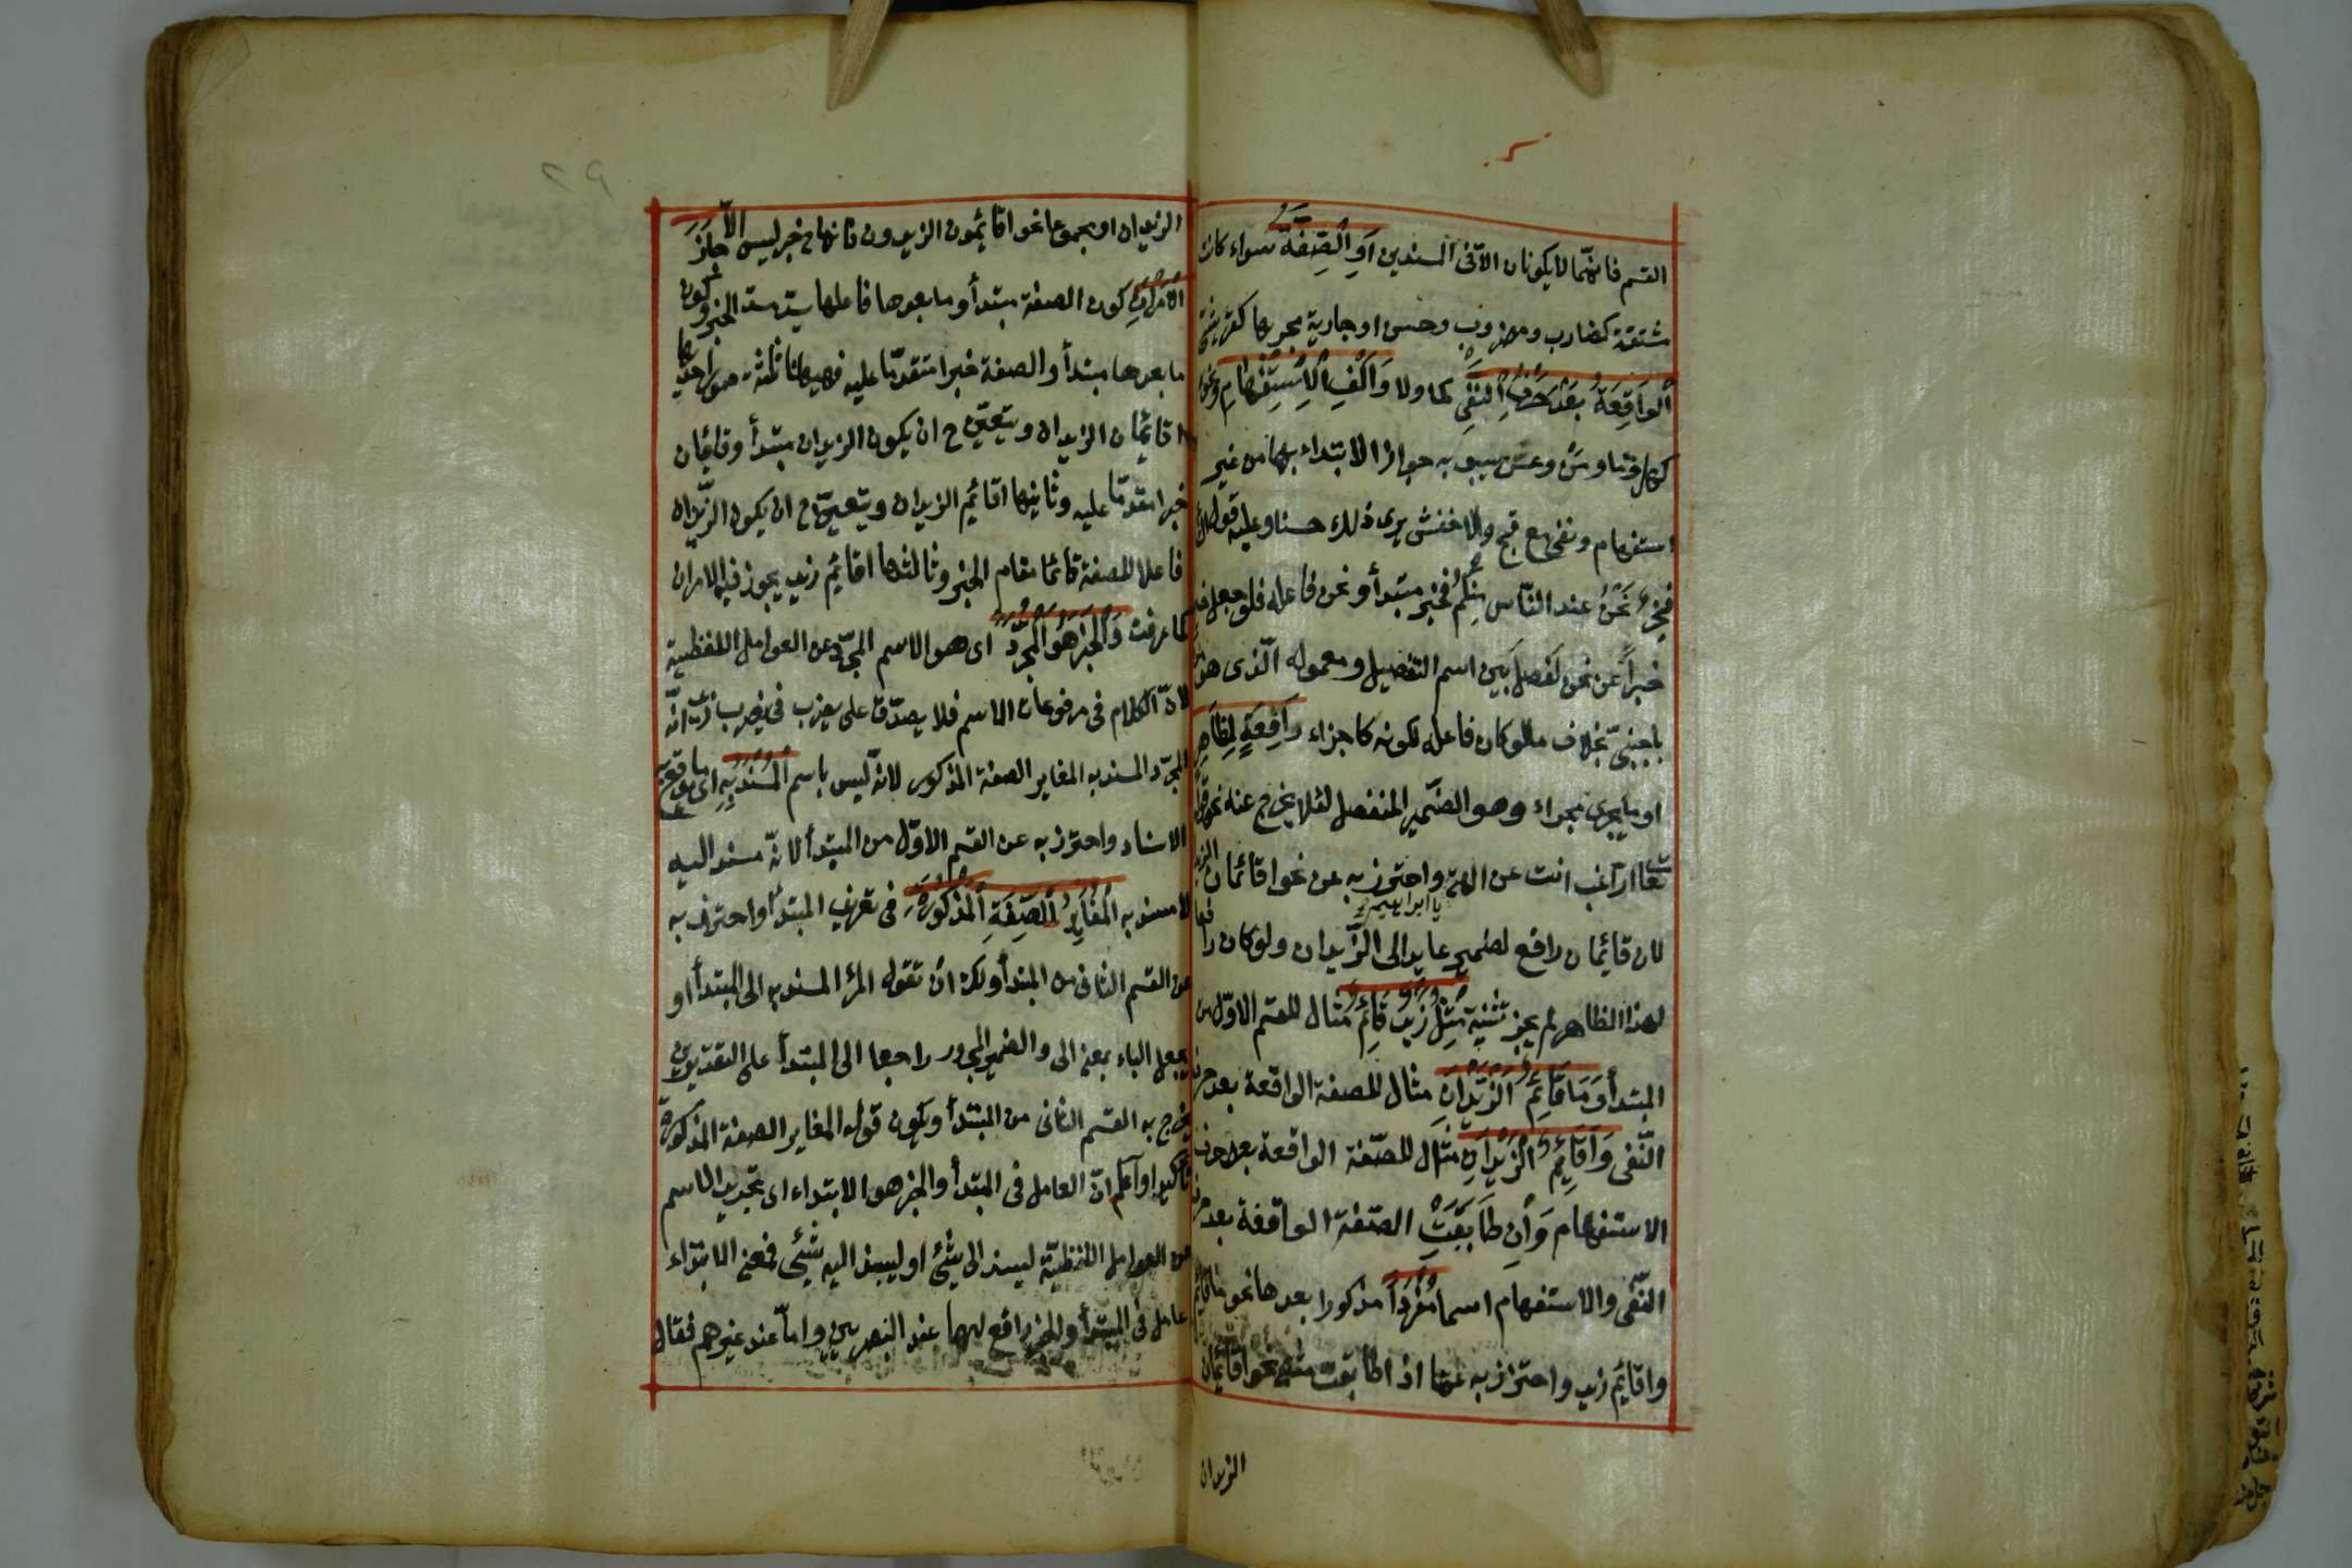 القسم فانهما لا يكونان الا فى المسندين او الصفة سواء كانت
مشتقة كضارب ومضروب وحسن او جارية مجريها كقريشى
الواقعة بعد حرف النفى كما ولا والف الاستفهام ونحوه
كهل وما ومن وعن سيبويه جواز الابتداء بها من غير
استفهام ونفى مع قبح والاخفش يرى ذلك حسنا وعليه قول الشاعر
فخير نحن عند الناس منكم فخير مبتدأ ونحن فاعله فلو جعل خير
خبرا عن نحن لفصل بين اسم التفضيل ومعموله الذى هو من
باجنبى بخلاف ما لو كان فاعله لكونه كالجزء رافعة لظاهر
او ما يجرى مجراه وهو الضمير المنفصل لئلا يخرج عنه نحو قوله
تعا اراغب انت عن الهتى يا ابراهيم واحترز به عن نحو اقائمان الزيدان
لان قائمان رافع لضمير عايد الى الزيدان ولو كان رافعا
لهذا الظاهر لم يجز تثنيته مثل زيد قائم مثال للقسم الاول من
المبتدأ وما قائم الزيدان مثال للصفة الواقعة بعد حرف
النفى واقائم الزيدان مثال للصفة الواقعة بعد حرف
الاستفهام وان طابقت الصفة الواقعة بعد حرف
النفى والاستفهام اسما مفردا مذكورا بعدها نحو ما قائم
واقائم زيد واحترز به عما اذا طابقت مثنى نحو اقائمان
الزيدان
الزيدان او مجموعا نحو اقائمون الزيدون فانها ح خبر ليس الا جاز
الامران كون الصفة مبتدأ وما بعدها فاعلها يسد مسد الخبر وكون
ما بعدها مبتدأ والصفة خبرا متقدما عليه فههنا ثلثة صور احديها
اقائمان الزيدان ويتعين ح ان يكون الزيدان مبتدأ وقائمان
خبرا مقدما عليه وثانيها اقائم الزيدان ويتعين ح ان يكون الزيدان
فاعلا للصفة قائما مقام الخبر وثالثها اقائم زيد يجوز فيه الامران
كما عرفت والخبر هو المجرد اى هو الاسم المجرد عن العوامل اللفظية
لان الكلام فى مرفوعات الاسم فلا يصدق على يضرب فى يضرب زيد انه
المجرد المسند به المغاير الصفة المذكور لانه ليس باسم المسند به اى ما يوقع به
الاسناد واحترز به عن القسم الاول من المبتدأ لانه مسند اليه
لا مسند به المغاير للصفة المذكورة فى تعريف المبتدأ واحترز به
عن القسم الثانى من المبتدأ ولك ان تقول المراد المسند به الى المبتدأ او
يجعل الباء بمعنى الى والضمير المجرور راجعا الى المبتدأ على التقديرين
يخرج به القسم الثانى من المبتدأ ويكون قوله المغاير الصفة المذكورة
تأكيدا واعلم ان العامل فى المبتدأ والخبر هو الابتداء اى تجريد الاسم
عن العوامل اللفظية ليسند الى شئ او ليسند اليه شئ فمعنى الابتداء
عامل فى المبتدأ والخبر رافع لهما عند البصريين واما عند غيرهم فقال